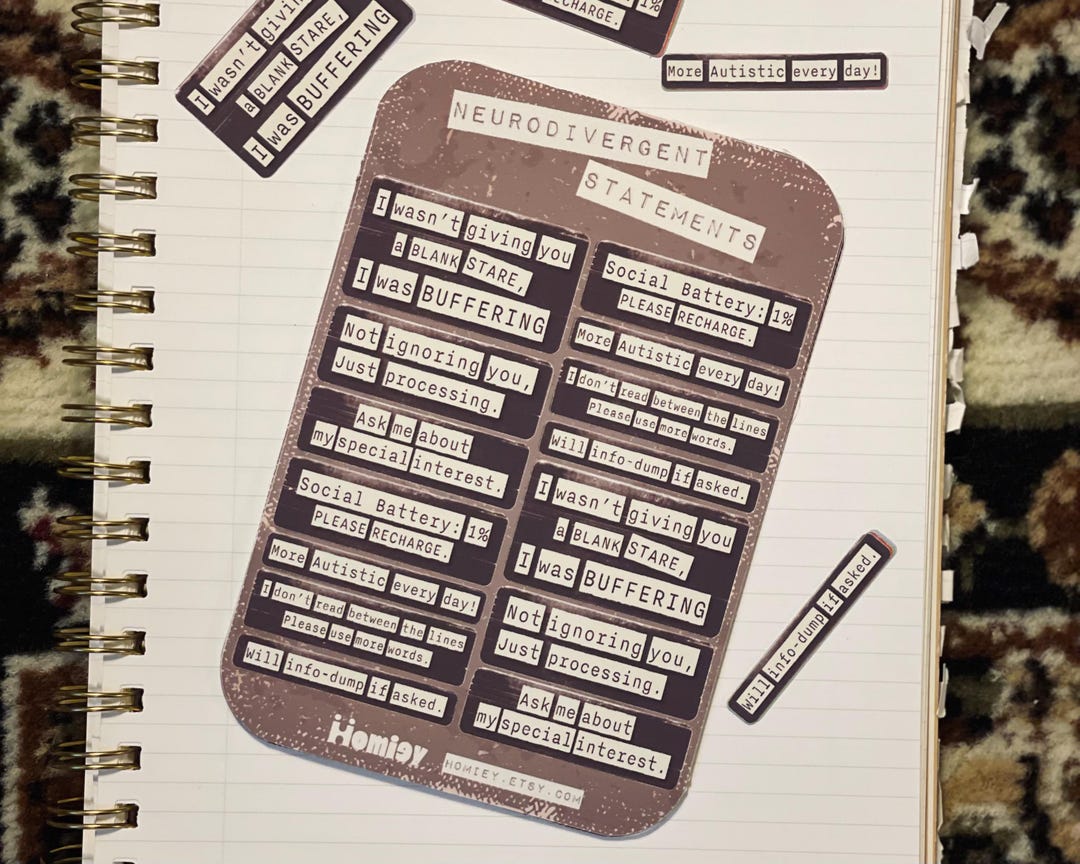 I wasn't givin
a BLANK STARE,
I was BUFFERING
1%
ECHARGE.
More Autistic every day!
NEURODIVERGENT
STATEMENTS
I wasn't giving you
a BLANK STARE,
I was BUFFERING
Not ignoring you,
Just processing.
Ask me about
my special interest.
Social Battery: 1%
PLEASE RECHARGE.
More Autistic every day!
I don't read between the lines
Please use more words.
Will info-dump if asked.
Social Battery: 1%
PLEASE RECHARGE.
More Autistic every day!
I don't read between the lines
Please use more words.
Will info-dump if asked.
I wasn't giving you
a BLANK STARE,
I was BUFFERING
Not ignoring you,
Just processing.
Ask me about
my special interest.
Will info-dump if asked.
Homiey
HOMIEY.ETSY.COM